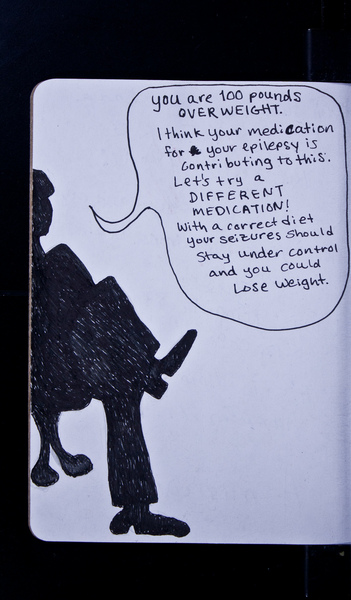 you are 100 pounds
OVERWEIGHT.
I think your medication
for your epilepsy is
contributing to this.
Let's try a
DIFFERENT
MEDICATION!
With a correct diet
your seizures should
stay under control
and you could
Lose weight.